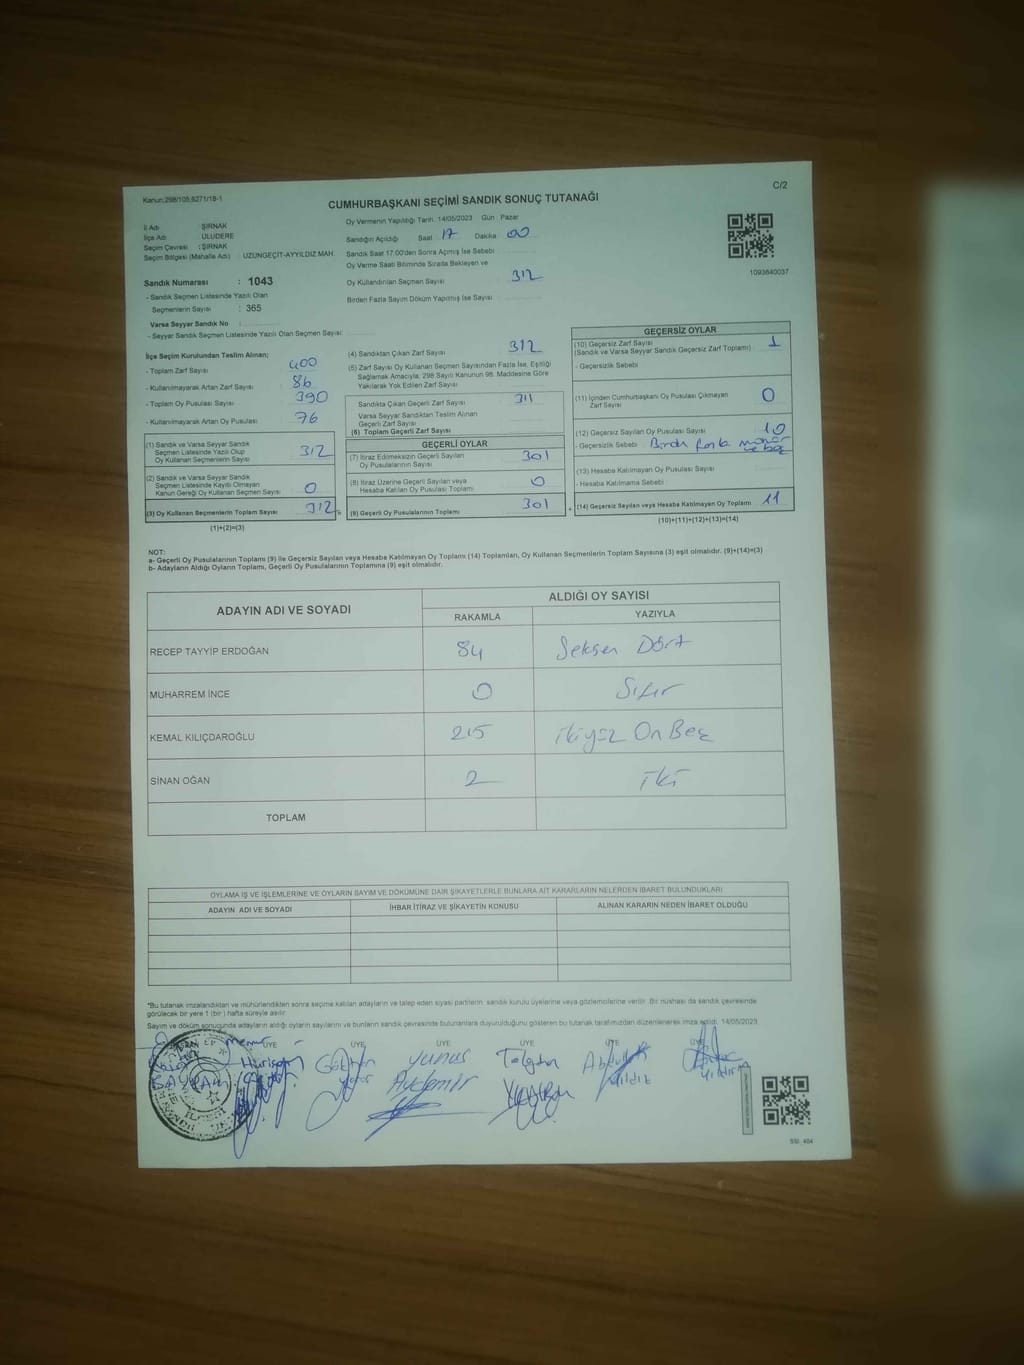 Kanun;298/105,6271/18-1
C/2
CUMHURBAŞKANI SEÇİMİ SANDIK SONUÇ TUTANAĞI
İl Adı : ŞIRNAK
İlçe Adı : ULUDERE
Seçim Çevresi : ŞIRNAK
Seçim Bölgesi (Mahalle Adı) : UZUNGEÇİT-AYYILDIZ MAH.
Sandık Numarası : 1043
- Sandık Seçmen Listesinde Yazılı Olan
Seçmenlerin Sayısı : 365
Varsa Seyyar Sandık No :
- Seyyar Sandık Seçmen Listesinde Yazılı Olan Seçmen Sayısı:
Oy Vermenin Yapıldığı Tarih 14/05/2023 Gün : Pazar
Sandığın Açıldığı Saat 17 Dakika 00
Sandık Saat 17:00'den Sonra Açmış İse Sebebi
Oy Verme Saati Bitiminde Sırada Bekleyen ve
Oy Kullandırılan Seçmen Sayısı 312
Birden Fazla Sayım Döküm Yapılmış İse Sayısı
1093640037
İlçe Seçim Kurulundan Teslim Alınan;
- Toplam Zarf Sayısı 400
- Kullanılmayarak Artan Zarf Sayısı 86
- Toplam Oy Pusulası Sayısı 390
- Kullanılmayarak Artan Oy Pusulası 76
(1) Sandık ve Varsa Seyyar Sandık
Seçmen Listesinde Yazılı Olup
Oy Kullanan Seçmenlerin Sayısı 312
(2) Sandık ve Varsa Seyyar Sandık
Seçmen Listesinde Kayıtlı Olmayan
Kanun Gereği Oy Kullanan Seçmen Sayısı 0
(3) Oy Kullanan Seçmenlerin Toplam Sayısı 312
(1)+(2)=(3)
(4) Sandıktan Çıkan Zarf Sayısı 312
(5) Zarf Sayısı Oy Kullanan Seçmen Sayısından Fazla İse, Eşitliği
Sağlamak Amacıyla; 298 Sayılı Kanunun 98. Maddesine Göre
Yakılarak Yok Edilen Zarf Sayısı
Sandıkta Çıkan Geçerli Zarf Sayısı 311
Varsa Seyyar Sandıktan Teslim Alınan
Geçerli Zarf Sayısı
(6) Toplam Geçerli Zarf Sayısı
GEÇERLİ OYLAR
(7) İtiraz Edilmeksizin Geçerli Sayılan
Oy Pusulalarının Sayısı 301
(8) İtiraz Üzerine Geçerli Sayılan veya
Hesaba Katılan Oy Pusulası Toplamı 0
(9) Geçerli Oy Pusulalarının Toplamı 301
GEÇERSİZ OYLAR
(10) Geçersiz Zarf Sayısı
(Sandık ve Varsa Seyyar Sandık Geçersiz Zarf Toplamı) : 1
- Geçersizlik Sebebi
(11) İçinden Cumhurbaşkanı Oy Pusulası Çıkmayan
Zarf Sayısı 0
(12) Geçersiz Sayılan Oy Pusulası Sayısı 10
- Geçersizlik Sebebi : Birden fazla mühür
(13) Hesaba Katılmayan Oy Pusulası Sayısı
- Hesaba Katılmama Sebebi :
(14) Geçersiz Sayılan veya Hesaba Katılmayan Oy Toplamı 11
(10)+(11)+(12)+(13)=(14)
NOT:
a- Geçerli Oy Pusulalarının Toplamı (9) ile Geçersiz Sayılan veya Hesaba Katılmayan Oy Toplamı (14) Toplamları, Oy Kullanan Seçmenlerin Toplam Sayısına (3) eşit olmalıdır. (9)+(14)=(3)
b- Adayların Aldığı Oyların Toplamı, Geçerli Oy Pusulalarının Toplamına (9) eşit olmalıdır.
ADAYIN ADI VE SOYADI ALDIĞI OY SAYISI
RAKAMLA YAZIYLA
RECEP TAYYİP ERDOĞAN 84 Seksen Dört
MUHARREM İNCE 0 Sıfır
KEMAL KILIÇDAROĞLU 215 İkiyüz On Beş
SİNAN OĞAN 2 İki
TOPLAM
OYLAMA İŞ VE İŞLEMLERİNE VE OYLARIN SAYIM VE DÖKÜMÜNE DAİR ŞİKAYETLERLE BUNLARA AİT KARARLARIN NELERDEN İBARET BULUNDUKLARI
ADAYIN ADI VE SOYADI İHBAR İTİRAZ VE ŞİKAYETİN KONUSU ALINAN KARARIN NEDEN İBARET OLDUĞU
*Bu tutanak imzalandıktan ve mühürlendikten sonra seçime katılan adayların ve talep eden siyasi partilerin, sandık kurulu üyelerine veya gözlemcilerine verilir. Bir nüshası da sandık çevresinde
görülecek bir yere 1 (bir) hafta süreyle asılır.
Sayım ve döküm sonucunda adayların aldığı oyların sayılarını ve bunların sandık çevresinde bulunanlara duyurulduğunu gösteren bu tutanak tarafımızdan düzenlenerek imza edildi. 14/05/2023
ÜYE ÜYE ÜYE ÜYE ÜYE ÜYE
Gökhan Yunus Tolgahan
BAYRAM Aydemir Yıldız Yıldırım
SSI_464